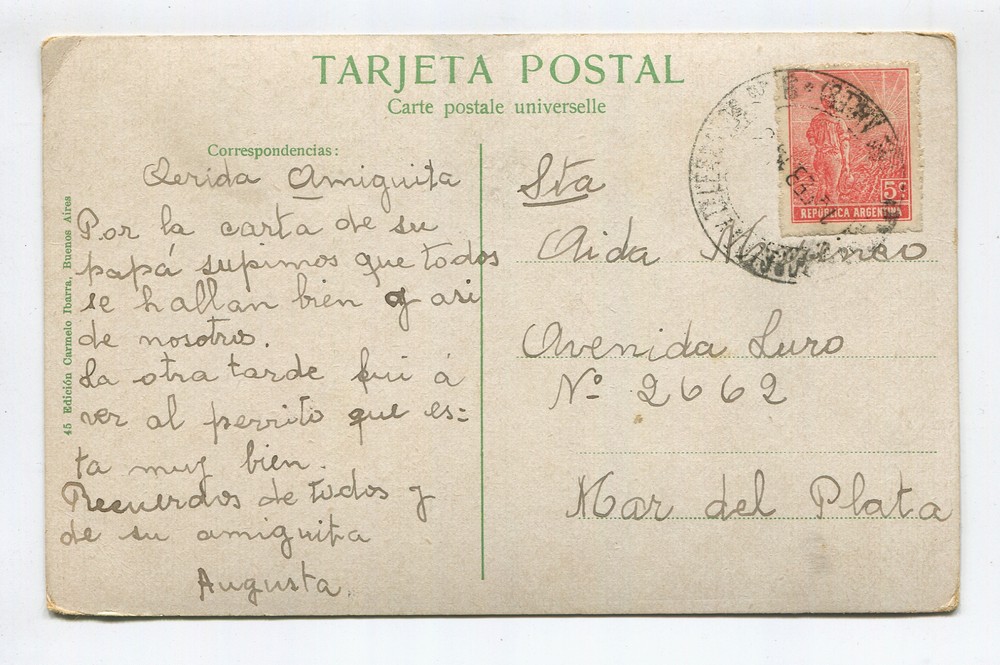 TARJETA POSTAL
Carte postale universelle
Correspondencias:
Qerida Amiguita
Por la carta de su
papá supimos que todos
se hallan bien y asi
de nosotros.
La otra tarde fui á
ver al perrito que es=
ta muy bien.
Recuerdos de todos y
de su amiguita
Augusta.
45 Edición Carmelo Ibarra, Buenos Aires
Sta
Aida
Avenida Luro
Nº 2662
Mar del Plata
5c
REPÚBLICA ARGENTINA